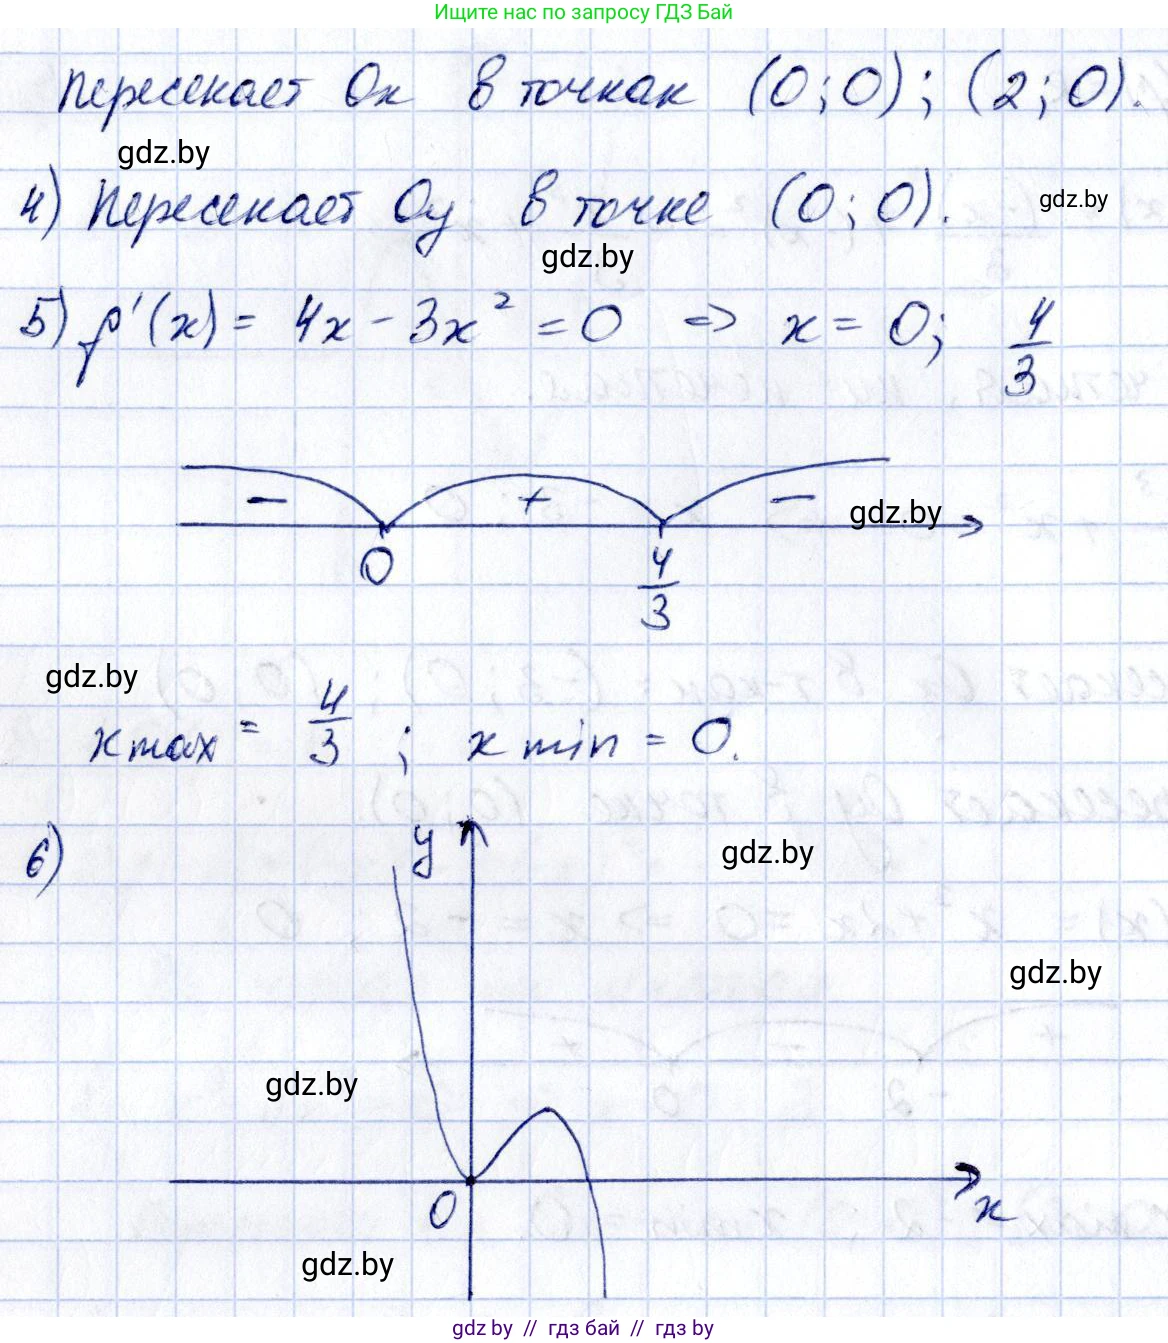 Ищите нас по запросу ГДЗ Бай
пересекает Ox в точках (0;0); (2;0).
gdz.by
4) Пересекает Oy в точке (0;0).
gdz.by
gdz.by
5) f'(x) = 4x - 3x² = 0 => x = 0; 4/3
- + -
gdz.by
0 4/3
gdz.by
xmax = 4/3; xmin = 0.
6)
y
gdz.by
gdz.by
gdz.by
0 x
gdz.by
gdz by // гдз бай // гдз by